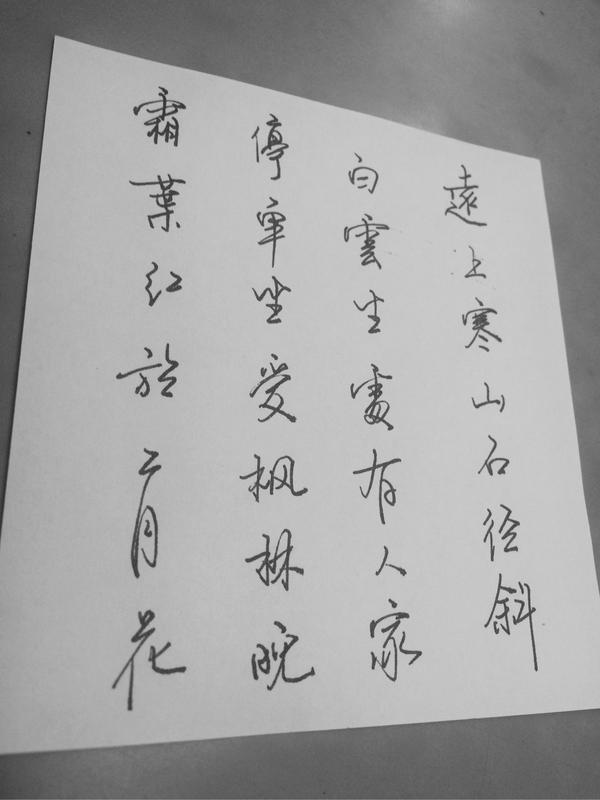 遠上寒山石径斜
白雲生處有人家
停車坐愛枫林晚
霜葉红於二月花